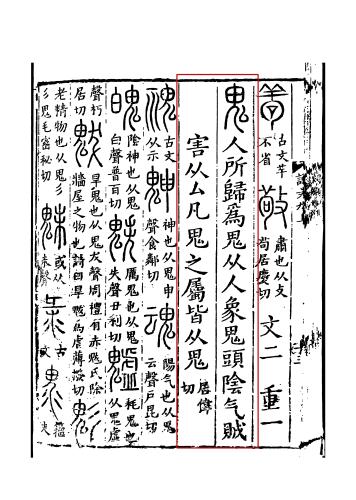 古文羊不省 敬 肅也从攴苟居慶切 文二 重一
鬼 人所歸爲鬼从人象鬼頭陰气賊
害从厶凡鬼之屬皆从鬼 居偉切
𥛠 古文从示 䰠 神也从鬼申聲食鄰切 魂 陽气也从鬼云聲戶昆切
魄 陰神也从鬼白聲普百切 𩲡 厲鬼也从鬼失聲丑利切 魖 耗鬼也从鬼虛
聲朽居切 魃 旱鬼也从鬼犮聲周禮有赤魃氏除牆屋之物也詩曰旱魃爲虐蒲撥切 鬽
老精物也从鬼彡彡鬼毛密祕切 魅 或从未聲 古文